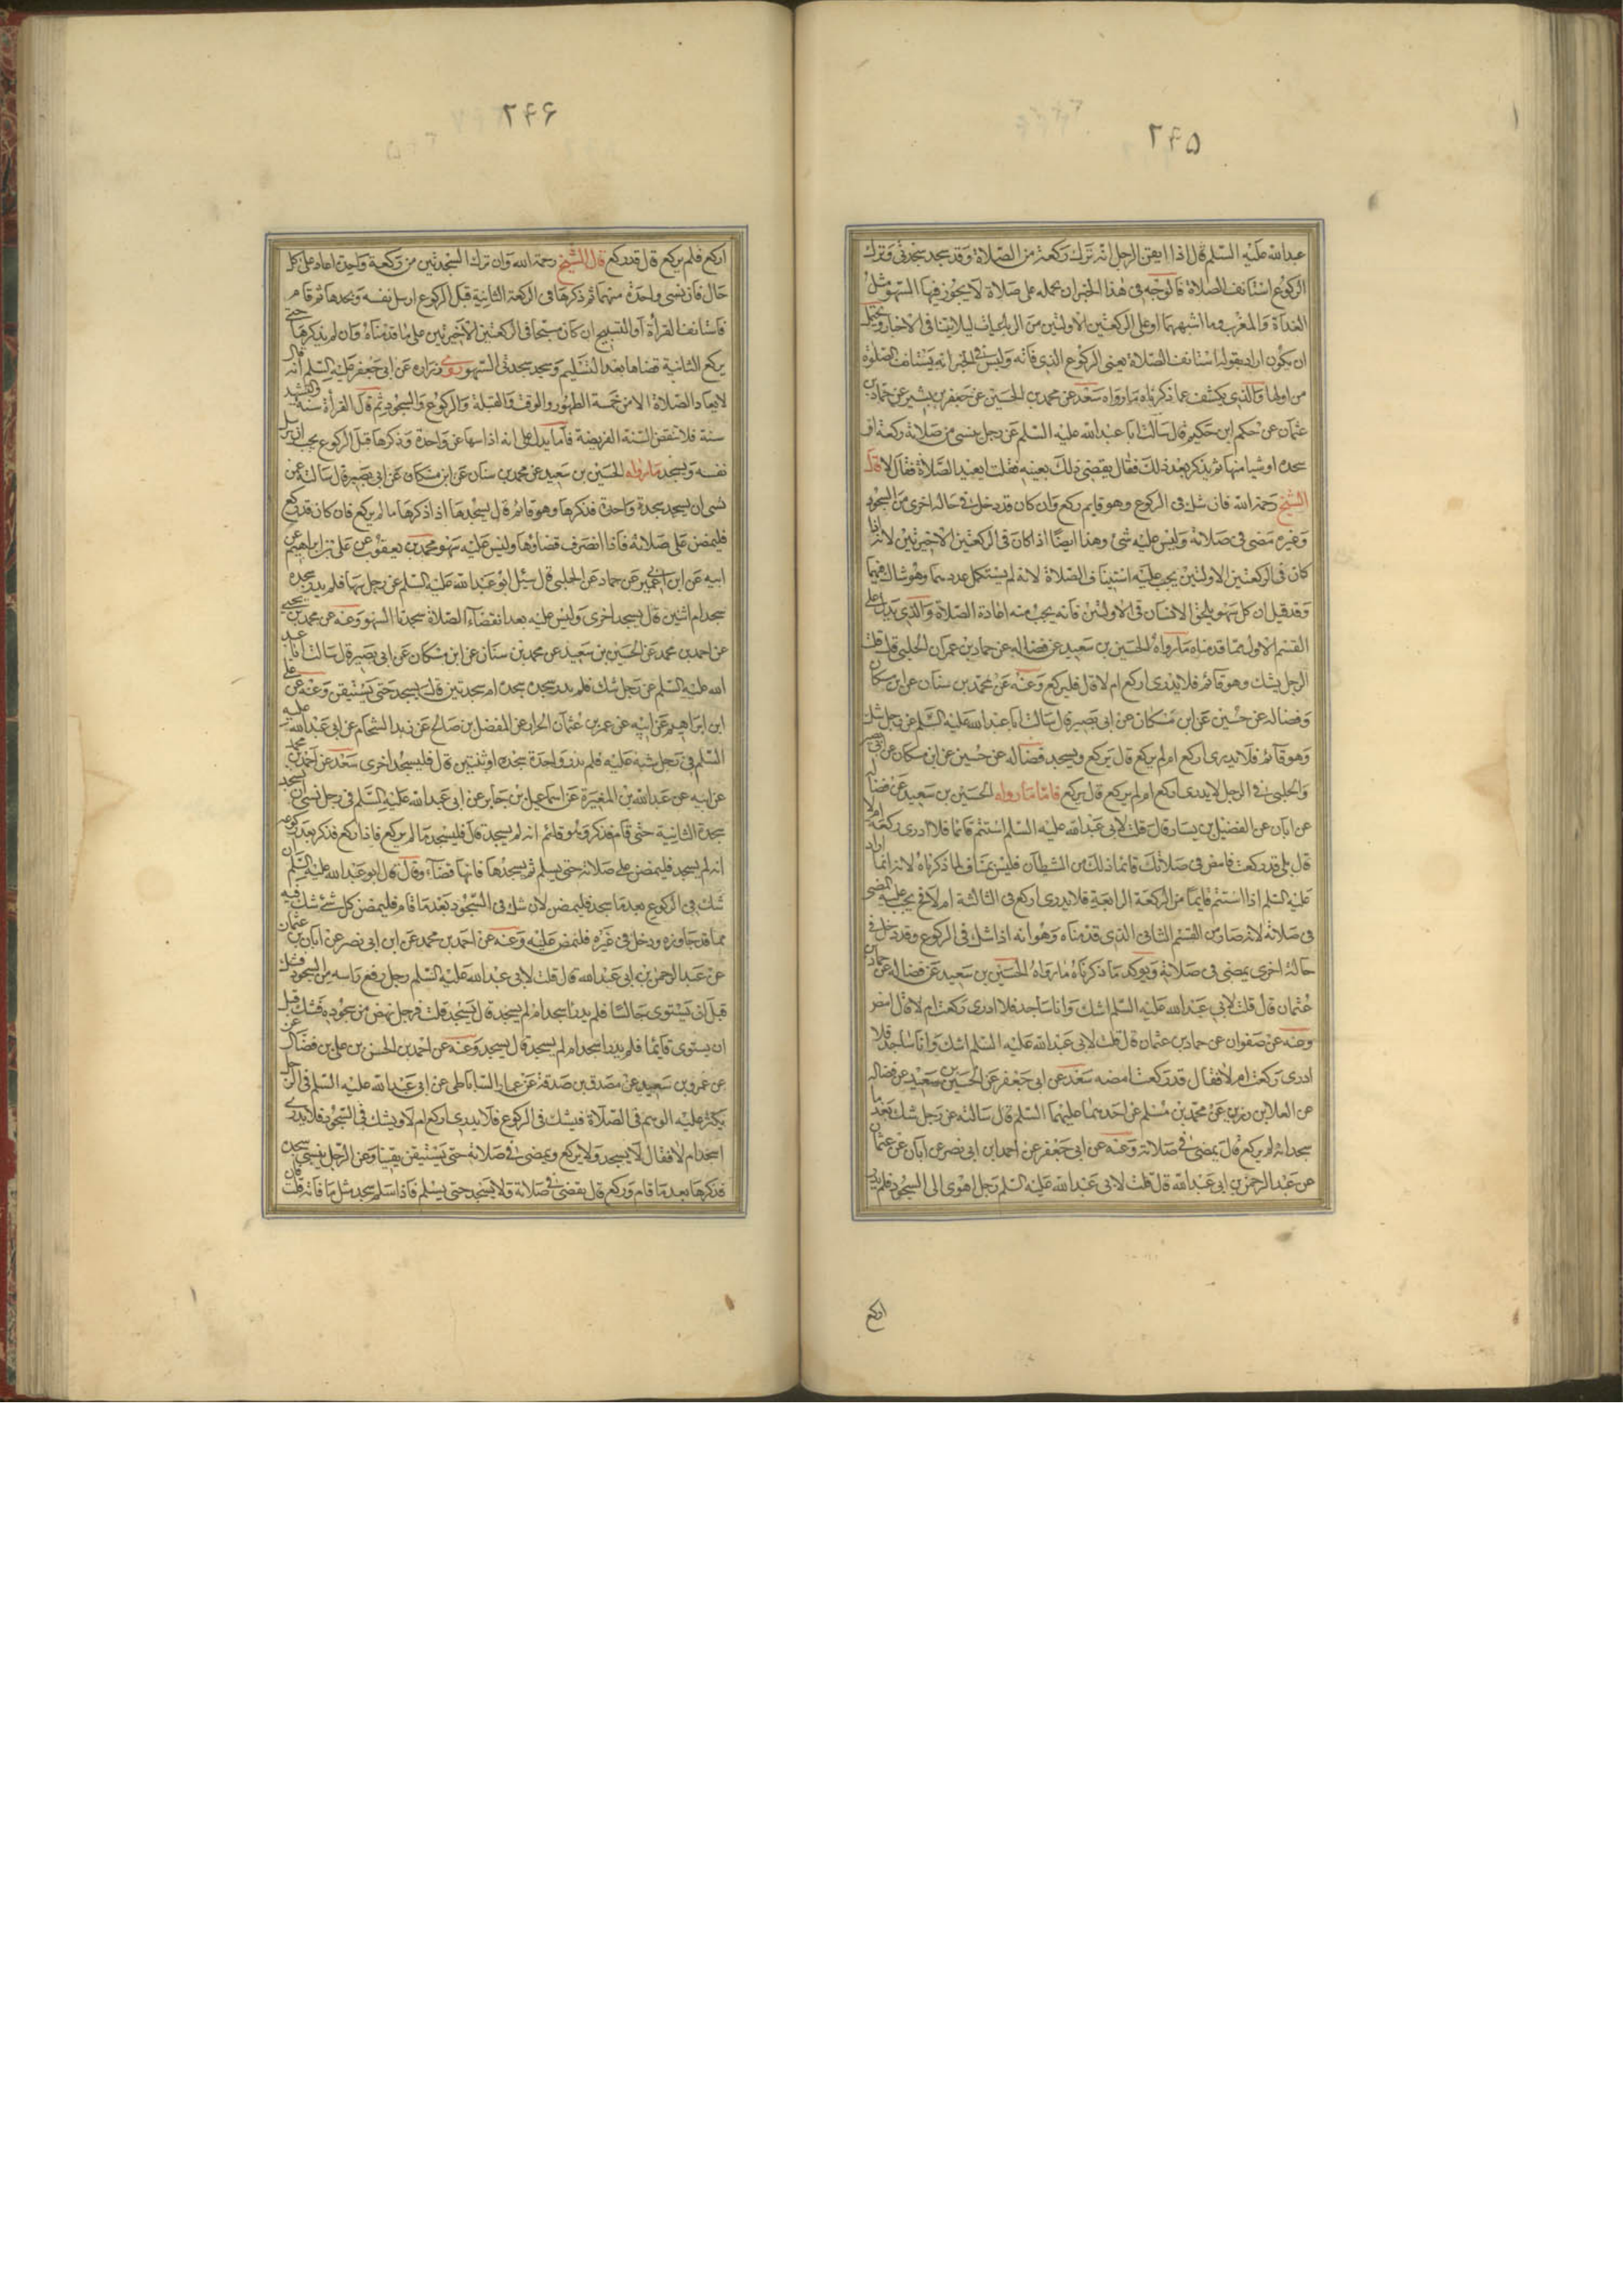 ٢۴۵
عبدالله عليه السلم قال اذا ايقن الرجل انه ترك ركعة من الصلاة وقد سجد سجدتين وترك
الركوع استانف الصلاة فالوجه فى هذا الخبر ان نحمله على صلاة لا يجوز فيها السهو مثل
الغداة والمغرب وما اشبههما او على الركعتين الاولتين من الرباعيات ليلا يتنافى الاخبار ويحتمل
ان يكون اراد بقوله استانف الصلاة يعنى الركوع الذى فاته وليس فى الخبر انه يستانف الصلوة
من اولها والذى يكشف عما ذكرناه مارواه سعد عن محمد بن الحسين عن جعفر بن بشير عن حماد بن
عثمان عن حكم ابن حكيم قال سالت ابا عبدالله عليه السلم عن رجل ينسى من صلاته ركعة او
سجدة او شيا منها ثم يذكر بعد ذلك فقال يقضى ذلك بعينه فقلت ايعيد الصلاة فقال لا قال
الشيخ رحمة الله فان شك فى الركوع وهو قايم ركع وان كان قد دخل فى حالة اخرى من السجود
وغيره مضى فى صلاته وليس عليه شئ وهذا ايضا اذا كان فى الركعتين الاخيرتين لانه اذا
كان فى الركعتين الاولتين يجب عليه استيناف الصلاة لانه لم يستكمل عددهما وهو شاك فيهما
وقد قيل ان كل سهو يلحق الانسان فى الاولتين فانه يجب منه اعادة الصلاة والذى يدل على
القسم الاول مما قدمناه مارواه الحسين بن سعيد عن فضاله عن حماد بن عمران الحلبى قال قلت
الرجل يشك وهو قائم فلا يدرى اركع ام لا قال فليركع وعنه عن محمد بن سنان عن ابن مسكان
وفضاله عن حسين عن ابن مسكان عن ابى بصير قال سالت ابا عبدالله عليه السلم عن رجل شك
وهو قائم فلا يدرى اركع ام لم يركع قال يركع ويسجد فضاله عن حسين عن ابن مسكان عن ابى بصير
والحلبى فى الرجل لا يدرى اركع ام لم يركع قال يركع فاما مارواه الحسين بن سعيد عن فضاله
عن ابان عن الفضيل بن يسار قال قلت لابى عبدالله عليه السلم استتم قائما فلا ادرى ركعت ام لا
قال بلى قد ركعت فامض فى صلاتك فانما ذلك من الشيطان فليس بمناف لما ذكرناه لانه انما اراد
عليه السلم اذا استتم قايما من الركعة الرابعة فلا يدرى اركع فى الثالثة ام لا فح يجب عليه المضى
فى صلاته لانه صار من القسم الثانى الذى قدمناه وهو انه اذا شك فى الركوع وقد دخل فى
حالة اخرى يمضى فى صلاته ويوكد ما ذكرناه مارواه الحسين بن سعيد عن فضاله عن حماد بن
عثمان قال قلت لابى عبدالله عليه السلم اشك وانا ساجد فلا ادرى ركعت ام لا قال امض
وعنه عن صفوان عن حماد بن عثمان قال قلت لابى عبدالله عليه السلم اشك وانا ساجد فلا
ادرى ركعت ام لا فقال قد ركعت امضه سعد عن ابى جعفر عن الحسين بن سعيد عن فضاله
عن العلا بن رزين عن محمد بن مسلم عن احدهما عليهما السلم قال سالته عن رجل شك بعد ما
سجد انه لم يركع قال يمضى فى صلاته وعنه عن ابى جعفر عن احمد ابن ابى نصر عن ابان عن عثمان
عن عبد الرحمن بن ابى عبدالله قال قلت لابى عبدالله عليه السلم رجل اهوى الى السجود فلم يدر
اركع
٢۴۶
اركع فلم يركع قال قد ركع قال الشيخ رحمة الله وان ترك السجدتين من ركعة واحدة اعاد على كل
حال فان نسى واحدة منهما ثم ذكرها فى الركعة الثانية قبل الركوع ارسل نفسه وسجدها ثم قام
فاستانف القرأة أو التسبيح ان كان مسبحا فى الركعتين الاخيرتين على ما قدمناه وان لم يذكرها حتى
يركع الثانية قضاها بعد التسليم وسجد سجدتى السهو روى زراره عن ابى جعفر عليه السلم انه قال
لا يعاد الصلاة الا من خمسة الطهور والوقت والقبلة والركوع والسجود ثم قال القرأة سنة والتشهد
سنة فلا تنقض السنة الفريضة فاما يدل على انه اذا سها عن واحدة وذكرها قبل الركوع يجب ان يرسل
نفسه ويسجد مارواه الحسين بن سعيد عن محمد بن سنان عن ابن مسكان عن ابى بصير قال سالته عمن
نسى ان يسجد سجدة واحدة فذكرها وهو قائم قال يسجدها اذا ذكرها ما لم يركع فان كان قد ركع
فليمض على صلاته فاذا انصرف قضاها وليس عليه سهو محمد بن يعقوب عن على بن ابراهيم عن
ابيه عن ابن ابى عمير عن حماد عن الحلبى قال سئل ابو عبدالله عليه السلم عن رجل سها فلم يدر سجدة
سجد ام اثنين قال يسجد اخرى وليس عليه بعد انقضاء الصلاة سجدتا السهو وعنه عن محمد بن يحيى
عن احمد بن محمد عن الحسين بن سعيد عن محمد بن سنان عن ابن مسكان عن ابى بصير قال سالت ابا عبد
الله عليه السلم عن رجل شك فلم يدر سجدة سجد ام سجدتين قال يسجد حتى يستيقن وعنه عن على
ابن ابراهيم عن ابيه عن عمرو بن عثمان الخزاز عن المفضل بن صالح عن زيد الشحام عن ابى عبدالله عليه
السلم فى رجل شبه عليه فلم يدر واحدة سجد او ثنتين قال فليسجد اخرى سعد عن احمد بن محمد
عن ابيه عن عبدالله بن المغيرة عن اسماعيل بن جابر عن ابى عبدالله عليه السلم فى رجل نسى ان يسجد
سجدة الثانية حتى قام فذكر وهو قائم انه لم يسجد قال فليسجد ما لم يركع فاذا ركع فذكر بعد ركوعه
انه لم يسجد فليمض على صلاته حتى يسلم ثم يسجدها فانها قضاء وقال قال ابو عبدالله عليه السلم ان
شك فى الركوع بعد ما سجد فليمض لان شك فى السجود بعد ما قام فليمض كل شئ شك فيه
مما قد جاوزه ودخل فى غيره فليمض عليه وعنه عن احمد بن محمد عن ابن ابى نصر عن ابان بن عثمان
عن عبد الرحمن بن ابى عبدالله قال قلت لابى عبدالله عليه السلم رجل رفع راسه من السجود فشك
قبل ان يستوى جالسا فلم يدر اسجد ام لم يسجد قال يسجد قلت فرجل نهض من سجوده فشك قبل
ان يستوى قايما فلم يدر اسجد ام لم يسجد قال يسجد وعنه عن احمد بن الحسن بن على بن فضال عن
عن عمرو بن سعيد عن مصدق بن صدقة عن عمار الساباطى عن ابى عبدالله عليه السلم فى الرجل
يكثر عليه الوهم فى الصلاة فيشك فى الركوع فلا يدرى اركع ام لا ويشك فى السجود فلا يدرى
اسجد ام لا فقال لا يسجد ولا يركع ويمضى فى صلاته حتى يستيقن يقينا وعن الرجل ينسى سجدة
فذكرها بعد ما قام وركع قال يقضى فى صلاته ولا يسجد حتى يسلم فاذا سلم سجد مثل ما فاته قلت